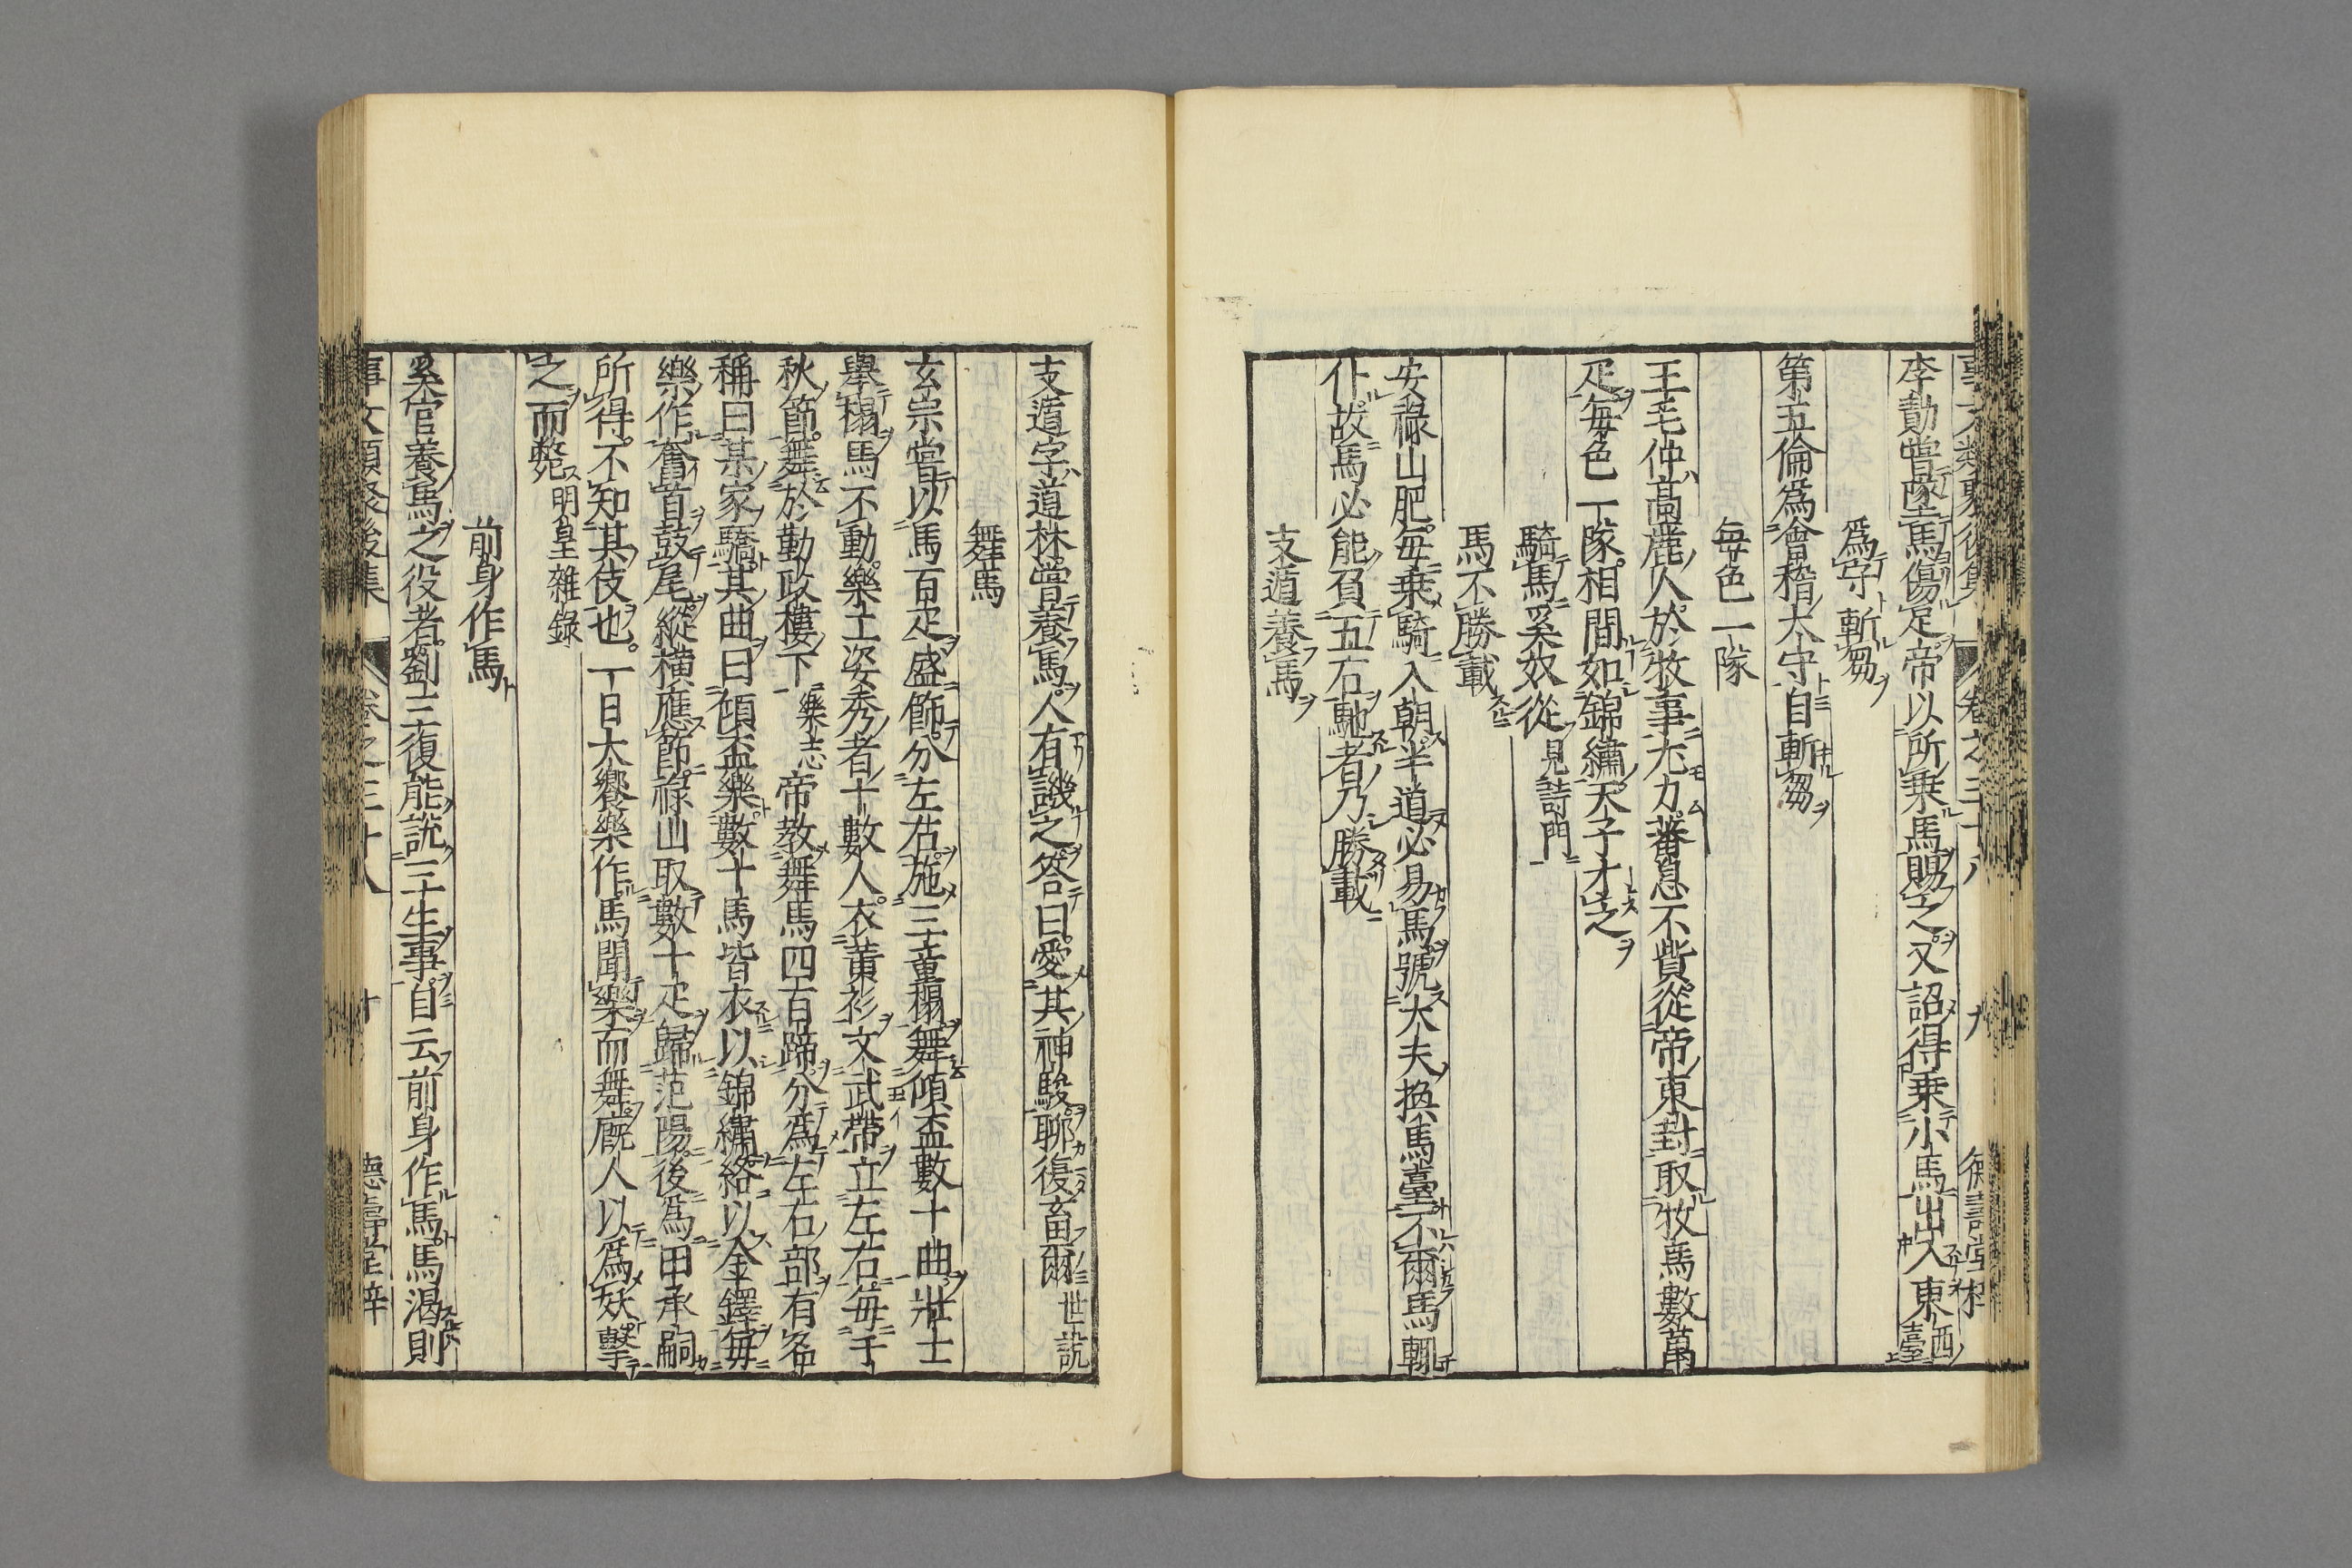 事文類聚後集 卷之三十八 九 德壽堂梓
李勣嘗墜馬傷足帝以所乘馬賜之又詔得乘小馬出入東西臺
爲守斬芻
第五倫爲會稽太守自斬芻
每色一隊
王毛仲高麗人於牧事尤力蕃息不貲從帝東封取牧馬數萬
疋每色一隊相間如錦繡天子才之
騎馬奚奴從 見詩門
馬不勝載
安祿山肥每乘騎入朝半道必易馬號大夫換馬臺不爾馬輙
仆故馬必能負五石馳者乃勝載
支遁養馬
支遁字道林嘗養馬人有譏之答曰愛其神駿聊復畜爾 世說
舞馬
玄宗嘗以馬百疋盛飾分左右施三重榻舞傾盃數十曲壯士
舉榻馬不動樂工姿秀者十數人衣黃衫文武帶立左右每千
秋節舞於勤政樓下 樂志 帝教舞馬四百蹄分爲左右部有名
稱曰某家驕其曲曰傾盃樂數十馬皆衣以錦繡絡以金鐸每
樂作奮首鼓尾縱橫應節祿山取數十疋歸范陽後爲田承嗣
所得不知其伎也一日大饗樂作馬聞樂而舞廐人以爲妖擊
之而斃 明皇雜錄
前身作馬
奚官養馬之役者劉三復能說三生事自云前身作馬馬渴則
事文類聚後集 卷之三十八 十 德壽堂梓